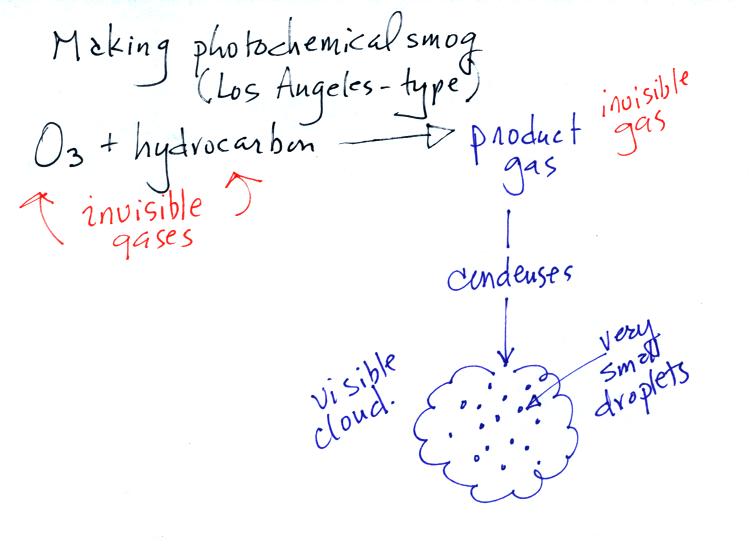 Making photochemical smog
(Los Angeles-type)
O3 + hydrocarbon → product gas
invisible gas
invisible gases
condenses
visible cloud.
very small droplets